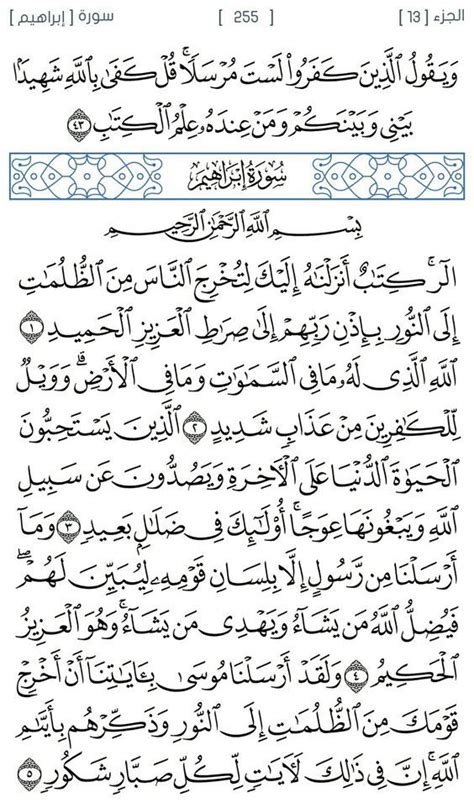 الجزء [ 13 ] [ 255 ] سورة [ إبراهيم ]
وَيَقُولُ ٱلَّذِينَ كَفَرُواْ لَسۡتَ مُرۡسَلٗاۚ قُلۡ كَفَىٰ بِٱللَّهِ شَهِيدَۢا
بَيۡنِي وَبَيۡنَكُمۡ وَمَنۡ عِندَهُۥ عِلۡمُ ٱلۡكِتَٰبِ ٤٣
سُورَةُ إِبۡرَاهِيم
بِسۡمِ ٱللَّهِ ٱلرَّحۡمَٰنِ ٱلرَّحِيمِ
الٓرۚ كِتَٰبٌ أَنزَلۡنَٰهُ إِلَيۡكَ لِتُخۡرِجَ ٱلنَّاسَ مِنَ ٱلظُّلُمَٰتِ
إِلَى ٱلنُّورِ بِإِذۡنِ رَبِّهِمۡ إِلَىٰ صِرَٰطِ ٱلۡعَزِيزِ ٱلۡحَمِيدِ ١
ٱللَّهِ ٱلَّذِي لَهُۥ مَا فِي ٱلسَّمَٰوَٰتِ وَمَا فِي ٱلۡأَرۡضِۗ وَوَيۡلٞ
لِّلۡكَٰفِرِينَ مِنۡ عَذَابٖ شَدِيدٍ ٢ ٱلَّذِينَ يَسۡتَحِبُّونَ
ٱلۡحَيَوٰةَ ٱلدُّنۡيَا عَلَى ٱلۡأٓخِرَةِ وَيَصُدُّونَ عَن سَبِيلِ
ٱللَّهِ وَيَبۡغُونَهَا عِوَجًاۚ أُوْلَٰٓئِكَ فِي ضَلَٰلِۭ بَعِيدٖ ٣ وَمَآ
أَرۡسَلۡنَا مِن رَّسُولٍ إِلَّا بِلِسَانِ قَوۡمِهِۦ لِيُبَيِّنَ لَهُمۡۖ
فَيُضِلُّ ٱللَّهُ مَن يَشَآءُ وَيَهۡدِي مَن يَشَآءُۚ وَهُوَ ٱلۡعَزِيزُ
ٱلۡحَكِيمُ ٤ وَلَقَدۡ أَرۡسَلۡنَا مُوسَىٰ بِـَٔايَٰتِنَآ أَنۡ أَخۡرِجۡ
قَوۡمَكَ مِنَ ٱلظُّلُمَٰتِ إِلَى ٱلنُّورِ وَذَكِّرۡهُم بِأَيَّىٰمِ
ٱللَّهِۚ إِنَّ فِي ذَٰلِكَ لَأٓيَٰتٖ لِّكُلِّ صَبَّارٖ شَكُورٖ ٥